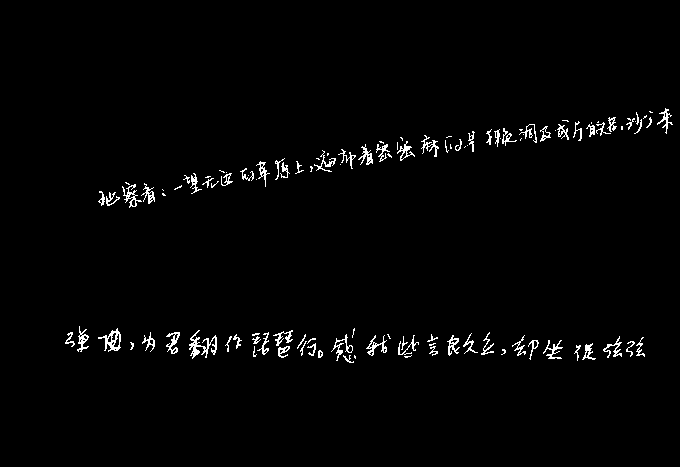 观察着:一望无边的草原上,遍布着密密麻的旱獭洞及成片的沙
弹曲,为君翻作琵琶行。感我些言良久立,却坐促弦弦